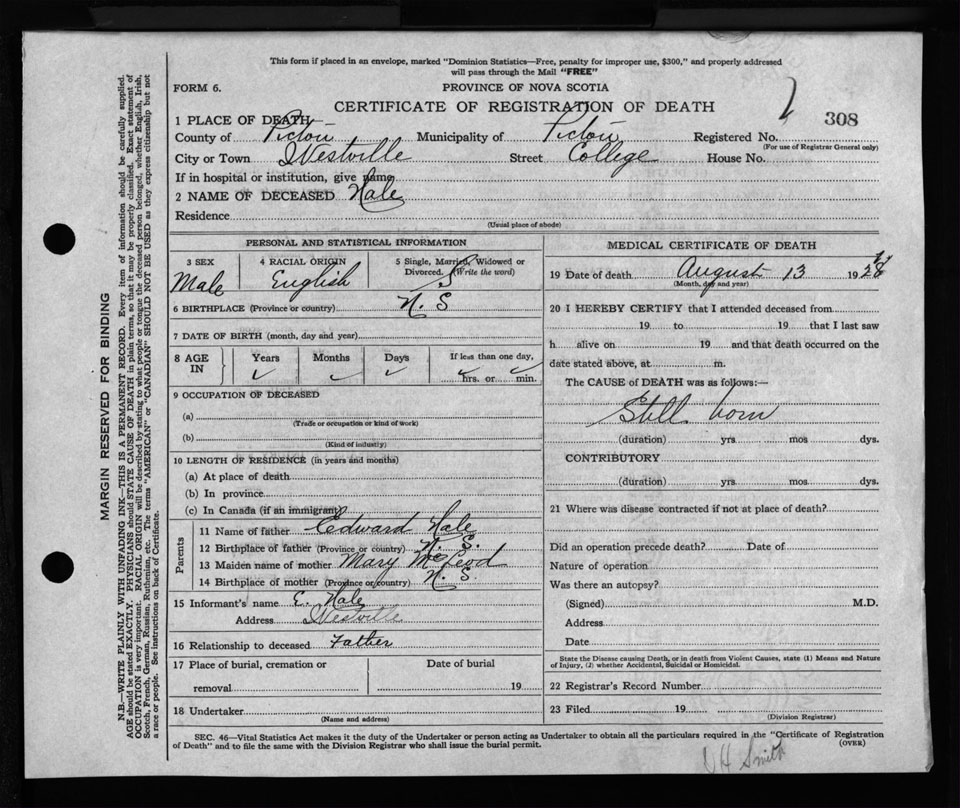 This form if placed in an envelope, marked "Dominion Statistics—Free, penalty for improper use, $300," and properly addressed
will pass through the Mail "FREE"
FORM 6.
PROVINCE OF NOVA SCOTIA
CERTIFICATE OF REGISTRATION OF DEATH
308
1 PLACE OF DEATH
County of Pictou Municipality of Pictou Registered No.
(For use of Registrar General only)
City or Town Westville Street College House No.
If in hospital or institution, give name
2 NAME OF DECEASED Hale
Residence
(Usual place of abode)
PERSONAL AND STATISTICAL INFORMATION
3 SEX 4 RACIAL ORIGIN 5 Single, Married, Widowed or
Divorced. (Write the word)
Male English S
6 BIRTHPLACE (Province or country) N. S
7 DATE OF BIRTH (month, day and year)
8 AGE IN Years Months Days If less than one day,
hrs. or min.
9 OCCUPATION OF DECEASED
(a)
(Trade or occupation or kind of work)
(b)
(Kind of industry)
10 LENGTH OF RESIDENCE (in years and months)
(a) At place of death
(b) In province
(c) In Canada (if an immigrant)
Parents
11 Name of father Edward Hale
12 Birthplace of father (Province or country) N. S.
13 Maiden name of mother Mary McLeod
14 Birthplace of mother (Province or country) N. S
15 Informant's name E. Hale
Address Westville
16 Relationship to deceased Father
17 Place of burial, cremation or Date of burial
removal 19
18 Undertaker
(Name and address)
MEDICAL CERTIFICATE OF DEATH
19 Date of death August 13 1928
(Month, day and year)
20 I HEREBY CERTIFY that I attended deceased from
19 to 19 that I last saw
h alive on 19 and that death occurred on the
date stated above, at m.
The CAUSE of DEATH was as follows:—
Still born
(duration) yrs. mos dys.
CONTRIBUTORY
(duration) yrs. mos. dys.
21 Where was disease contracted if not at place of death?
Did an operation precede death? Date of
Nature of operation
Was there an autopsy?
(Signed) M.D.
Address
Date
State the Disease causing Death, or in death from Violent Causes, state (1) Means and Nature
of Injury, (2) whether Accidental, Suicidal or Homicidal.
22 Registrar's Record Number
23 Filed 19
(Division Registrar)
SEC. 46—Vital Statistics Act makes it the duty of the Undertaker or person acting as Undertaker to obtain all the particulars required in the "Certificate of Registration
of Death" and to file the same with the Division Registrar who shall issue the burial permit. (OVER)
Smith
MARGIN RESERVED FOR BINDING
N.B.—WRITE PLAINLY WITH UNFADING INK—THIS IS A PERMANENT RECORD. Every item of information should be carefully supplied.
AGE should be stated EXACTLY. PHYSICIANS should STATE CAUSE OF DEATH in plain terms, so that it may be properly classified. Exact statement of
OCCUPATION is very important. RACIAL ORIGIN will be described by stating to what people or tongue the deceased person belonged, whether English, Irish,
Scotch, French, German, Russian, Ruthenian, etc. The terms "AMERICAN" or "CANADIAN" SHOULD NOT BE USED as they express citizenship but not
a race or people. See instructions on back of Certificate.